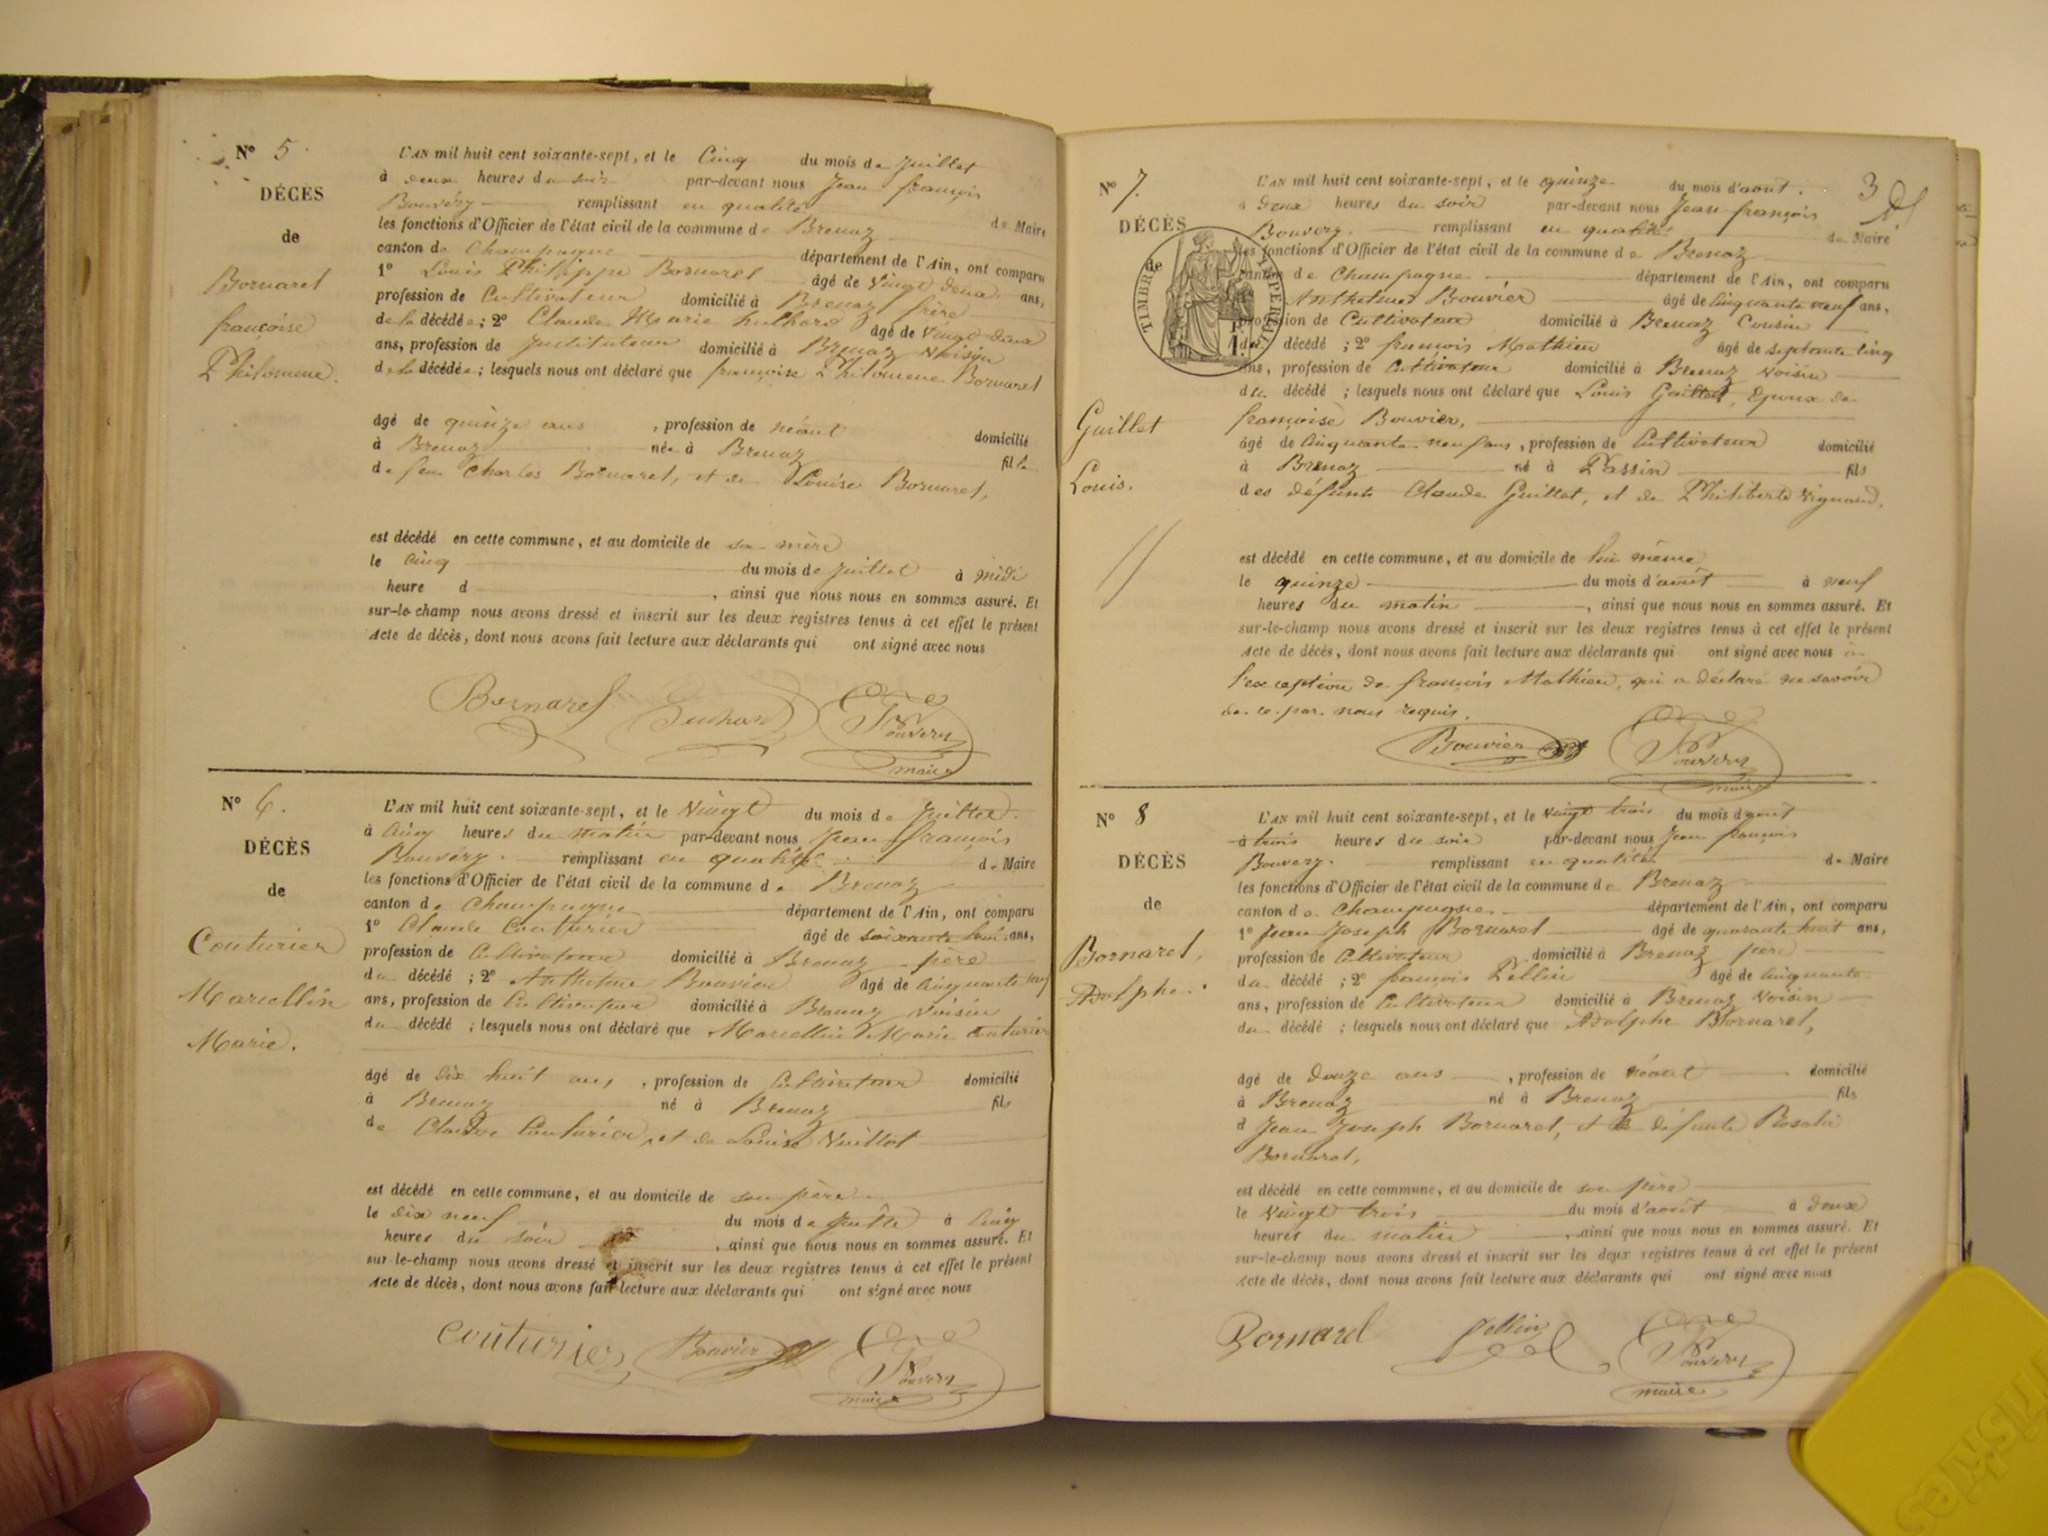 N° 5.
DÉCÈS
de
Bornarel
françoise
Philomene.
L'AN mil huit cent soixante-sept, et le Cinq du mois de Juillet
à deux heures du soir par-devant nous Jean françois
Bouvéry remplissant en qualité de Maire
les fonctions d'Officier de l'état civil de la commune de Brenaz
canton de Champagne département de l'Ain, ont comparu
1° Louis Philippe Bornarel âgé de Vingt deux ans,
profession de Cultivateur domicilié à Brenaz frère
de la décédée; 2° Claude Marie âgé de Vingt-deux
ans, profession de Instituteur domicilié à Brenaz Voisin
de la décédée; lesquels nous ont déclaré que françoise Philomene Bornarel
âgé de quinze ans , profession de néant domicilié
à Brenaz née à Brenaz fille
de feu Charles Bornarel, et de Louise Bornarel,
est décédé en cette commune, et au domicile de sa mère
le Cinq du mois de Juillet à midi
heure d , ainsi que nous nous en sommes assuré. Et
sur-le-champ nous avons dressé et inscrit sur les deux registres tenus à cet effet le présent
Acte de décès, dont nous avons fait lecture aux déclarants qui ont signé avec nous
Bornarel Bouvery
maire
N° 6.
DÉCÈS
de
Couturier
Marcellin
Marie.
L'AN mil huit cent soixante-sept, et le Vingt du mois de Juillet
à Cinq heures du matin par-devant nous Jean françois
Bouvéry. remplissant en qualité de Maire
les fonctions d'Officier de l'état civil de la commune de Brenaz
canton de Champagne département de l'Ain, ont comparu
1° Claude Couturier âgé de soixante huit ans,
profession de Cultivateur domicilié à Brenaz père
du décédé ; 2° Anthelme Bouvier âgé de Cinquante neuf
ans, profession de Cultivateur domicilié à Brenaz Voisin
du décédé ; lesquels nous ont déclaré que Marcellin Marie Couturier
âgé de dix huit ans , profession de Cultivateur domicilié
à Brenaz né à Brenaz fils
de Claude Couturier, et de Louise Vuillot
est décédé en cette commune, et au domicile de son père
le dix neuf du mois de Juillet à Cinq
heures du soir , ainsi que nous nous en sommes assuré. Et
sur-le-champ nous avons dressé et inscrit sur les deux registres tenus à cet effet le présent
Acte de décès, dont nous avons fait lecture aux déclarants qui ont signé avec nous
Couturier Bouvier Bouvery
maire
3
N° 7.
DÉCÈS
de
TIMBRE IMPERIAL
Guillet
Louis.
L'AN mil huit cent soixante-sept, et le quinze du mois d'août.
à deux heures du soir par-devant nous Jean françois
Bouvery. remplissant en qualité de Maire
les fonctions d'Officier de l'état civil de la commune de Brenaz
canton de Champagne département de l'Ain, ont comparu
Anthelme Bouvier âgé de Cinquante neuf ans,
profession de Cultivateur domicilié à Brenaz Cousin
du décédé ; 2° françois Mathieu âgé de septante Cinq
ans, profession de Cultivateur domicilié à Brenaz Voisin
du décédé ; lesquels nous ont déclaré que Louis Guillet, Epoux de
françoise Bouvier,
âgé de Cinquante neuf ans, profession de Cultivateur domicilié
à Brenaz né à Passin fils
des défunts Claude Guillet, et de Philiberte Vignand,
est décédé en cette commune, et au domicile de lui même
le quinze du mois d'août à neuf
heures du matin , ainsi que nous nous en sommes assuré. Et
sur-le-champ nous avons dressé et inscrit sur les deux registres tenus à cet effet le présent
Acte de décès, dont nous avons fait lecture aux déclarants qui ont signé avec nous à
l'exception de françois Mathieu, qui a déclaré ne savoir
de ce par nous requis.
Bouvier Bouvery
maire
N° 8
DÉCÈS
de
Bornarel,
Adolphe.
L'AN mil huit cent soixante-sept, et le vingt trois du mois d'août
à trois heures du soir par-devant nous Jean françois
Bouvery. remplissant en qualité de Maire
les fonctions d'Officier de l'état civil de la commune de Brenaz
canton de Champagne département de l'Ain, ont comparu
1° Jean Joseph Bornarel âgé de quarante huit ans,
profession de Cultivateur domicilié à Brenaz père
du décédé ; 2° françois Pellin âgé de Cinquante
ans, profession de Cultivateur domicilié à Brenaz Voisin
du décédé ; lesquels nous ont déclaré que Adolphe Bornarel,
âgé de douze ans , profession de néant domicilié
à Brenaz né à Brenaz fils
d Jean Joseph Bornarel, et de défunte Rosalie
Bornarel,
est décédé en cette commune, et au domicile de son père
le Vingt trois du mois d'août à deux
heures du matin , ainsi que nous nous en sommes assuré. Et
sur-le-champ nous avons dressé et inscrit sur les deux registres tenus à cet effet le présent
Acte de décès, dont nous avons fait lecture aux déclarants qui ont signé avec nous
Bornarel Pellin Bouvery
maire